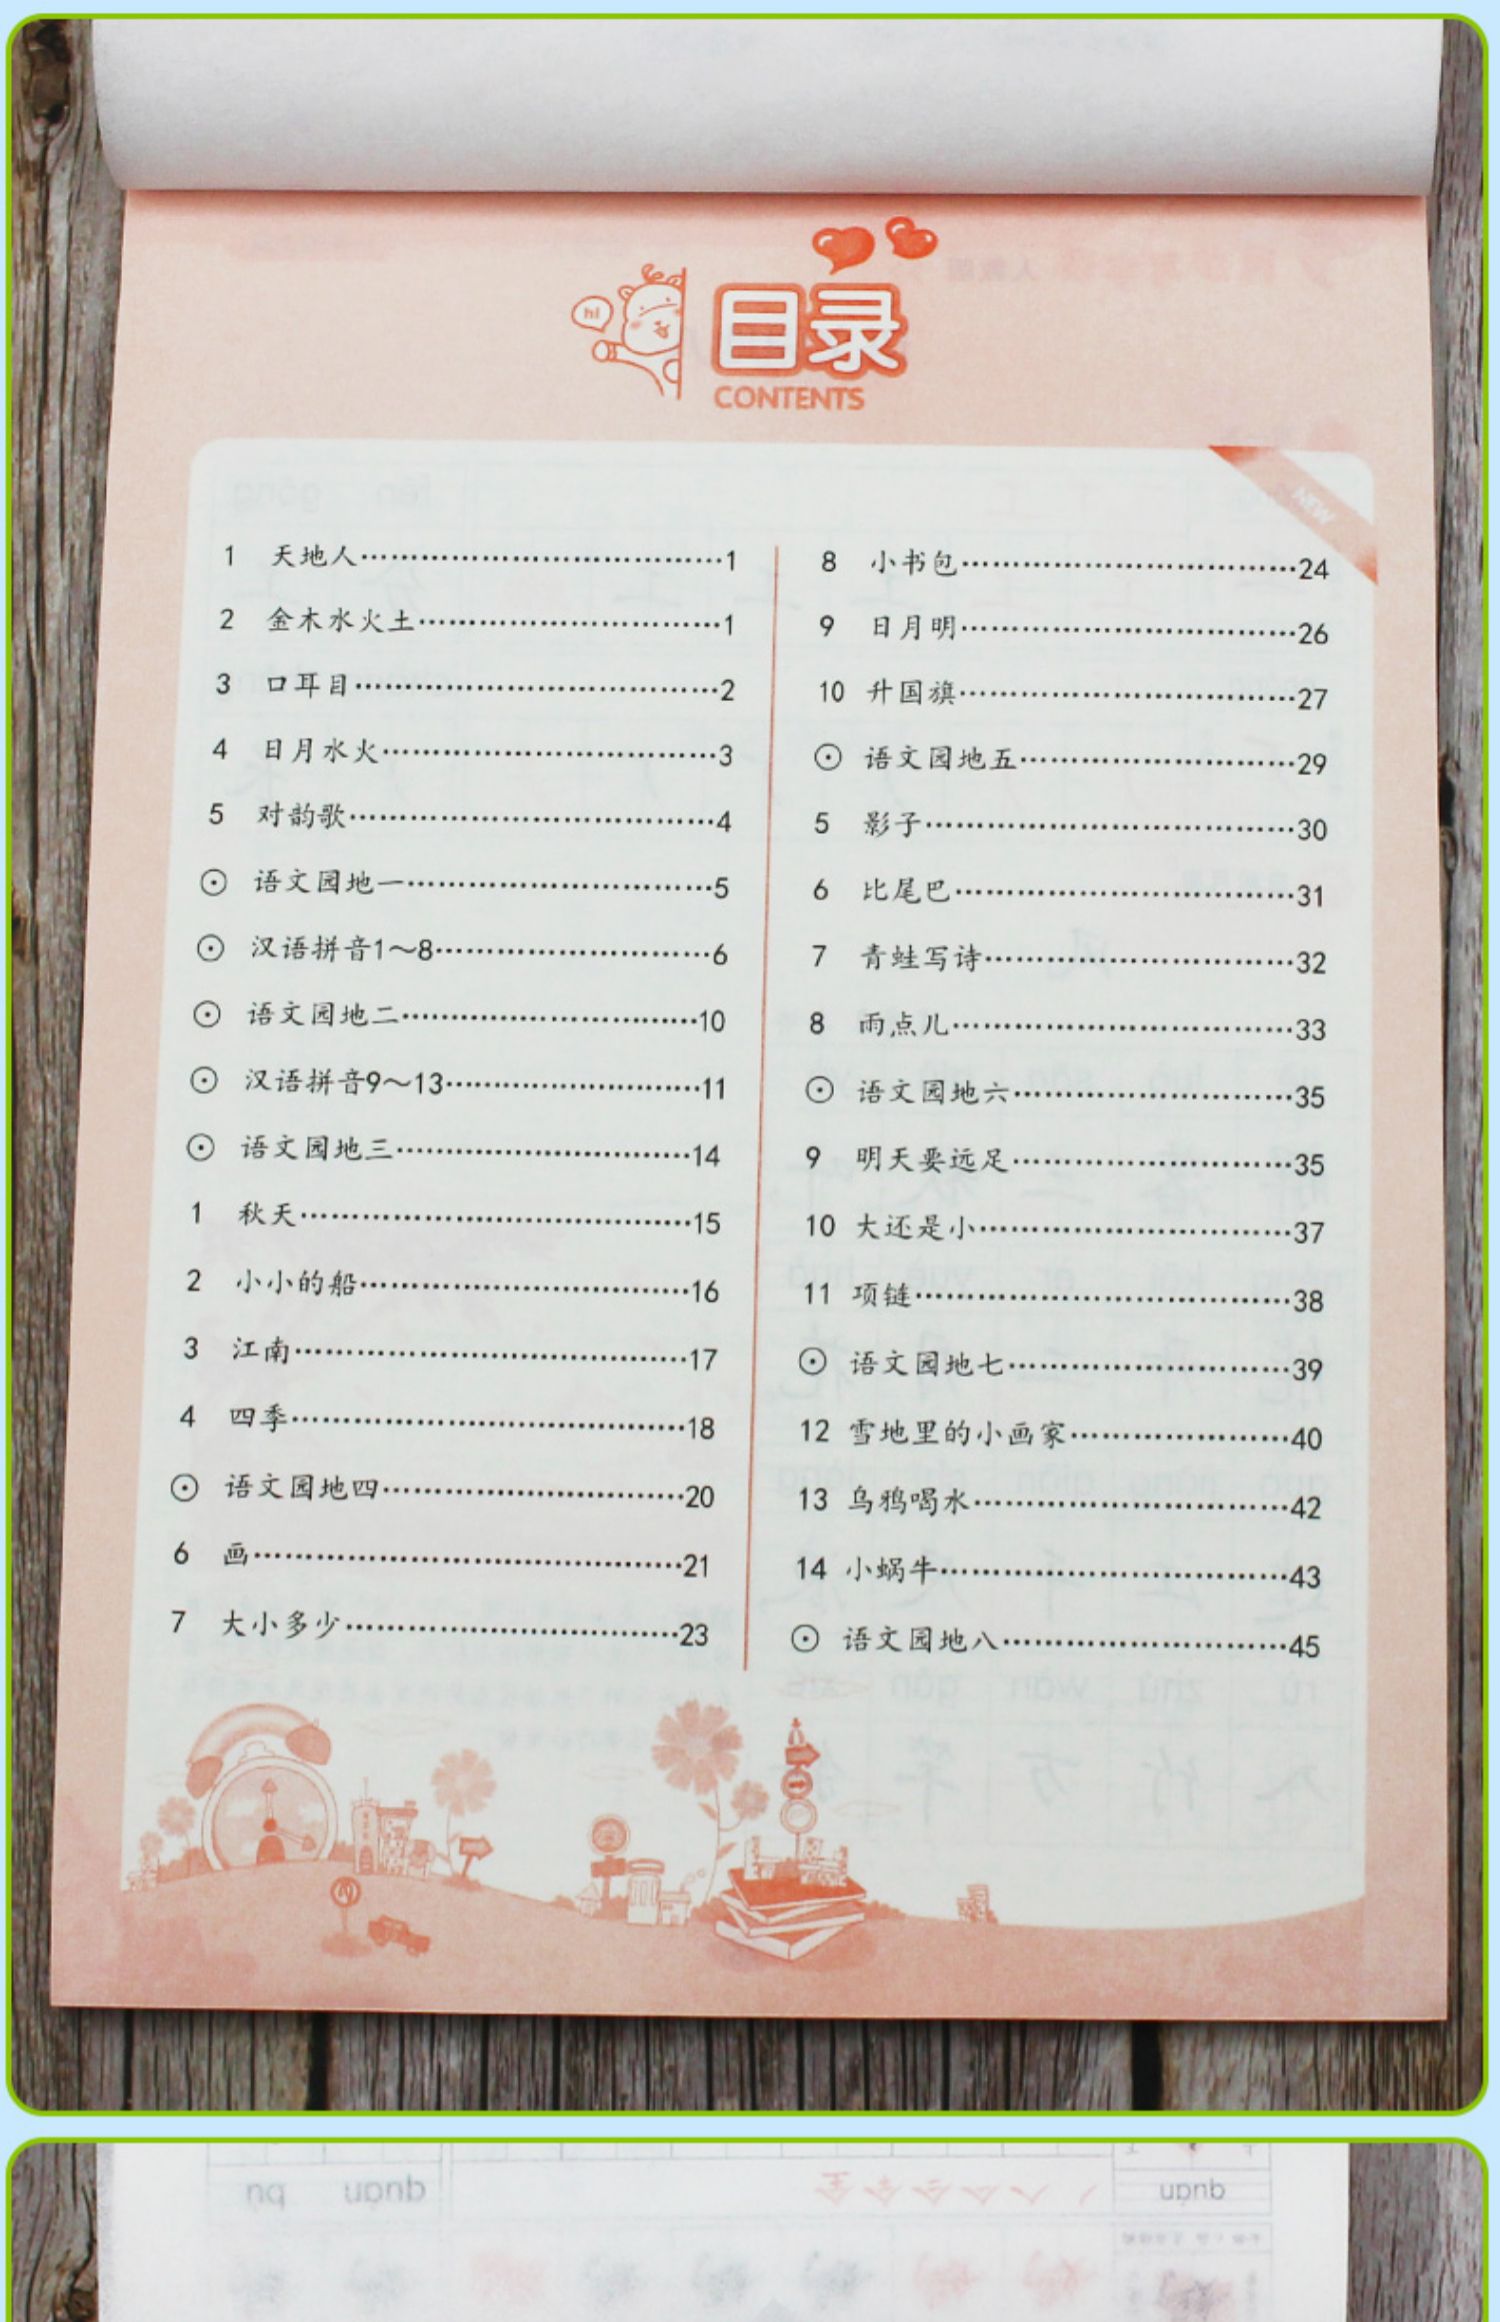 hi
目录
CONTENTS
NEW
1 天地人……1
2 金木水火土……1
3 口耳目……2
4 日月水火……3
5 对韵歌……4
⊙ 语文园地一……5
⊙ 汉语拼音1～8……6
⊙ 语文园地二……10
⊙ 汉语拼音9～13……11
⊙ 语文园地三……14
1 秋天……15
2 小小的船……16
3 江南……17
4 四季……18
⊙ 语文园地四……20
6 画……21
7 大小多少……23
8 小书包……24
9 日月明……26
10 升国旗……27
⊙ 语文园地五……29
5 影子……30
6 比尾巴……31
7 青蛙写诗……32
8 雨点儿……33
⊙ 语文园地六……35
9 明天要远足……35
10 大还是小……37
11 项链……38
⊙ 语文园地七……39
12 雪地里的小画家……40
13 乌鸦喝水……42
14 小蜗牛……43
⊙ 语文园地八……45